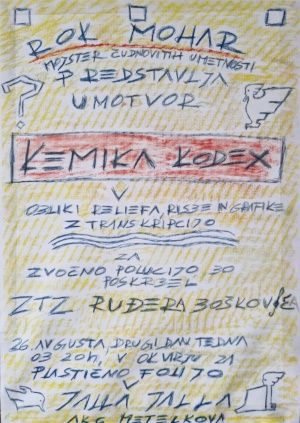 ROK MOHAR
MOJSTER ČUDNOVITIH UMETNOSTI
PREDSTAVLJA
UMOTVOR
KEMIKA KODEX
V
OBLIKI RELIEFA, RISBE IN GRAFIKE
Z TRANSKRIPCIJO
ZA
ZVOČNO POLUCIJO BO
POSKRBEL
ZTZ RUĐERA BOŠKOVIĆ
26. AVGUSTA, DRUGI DAN TEDNA
OB 20h, V OKVIRJU ZA
PLASTIČNO FOLIJO
V
JALLA JALLA
AKC METELKOVA